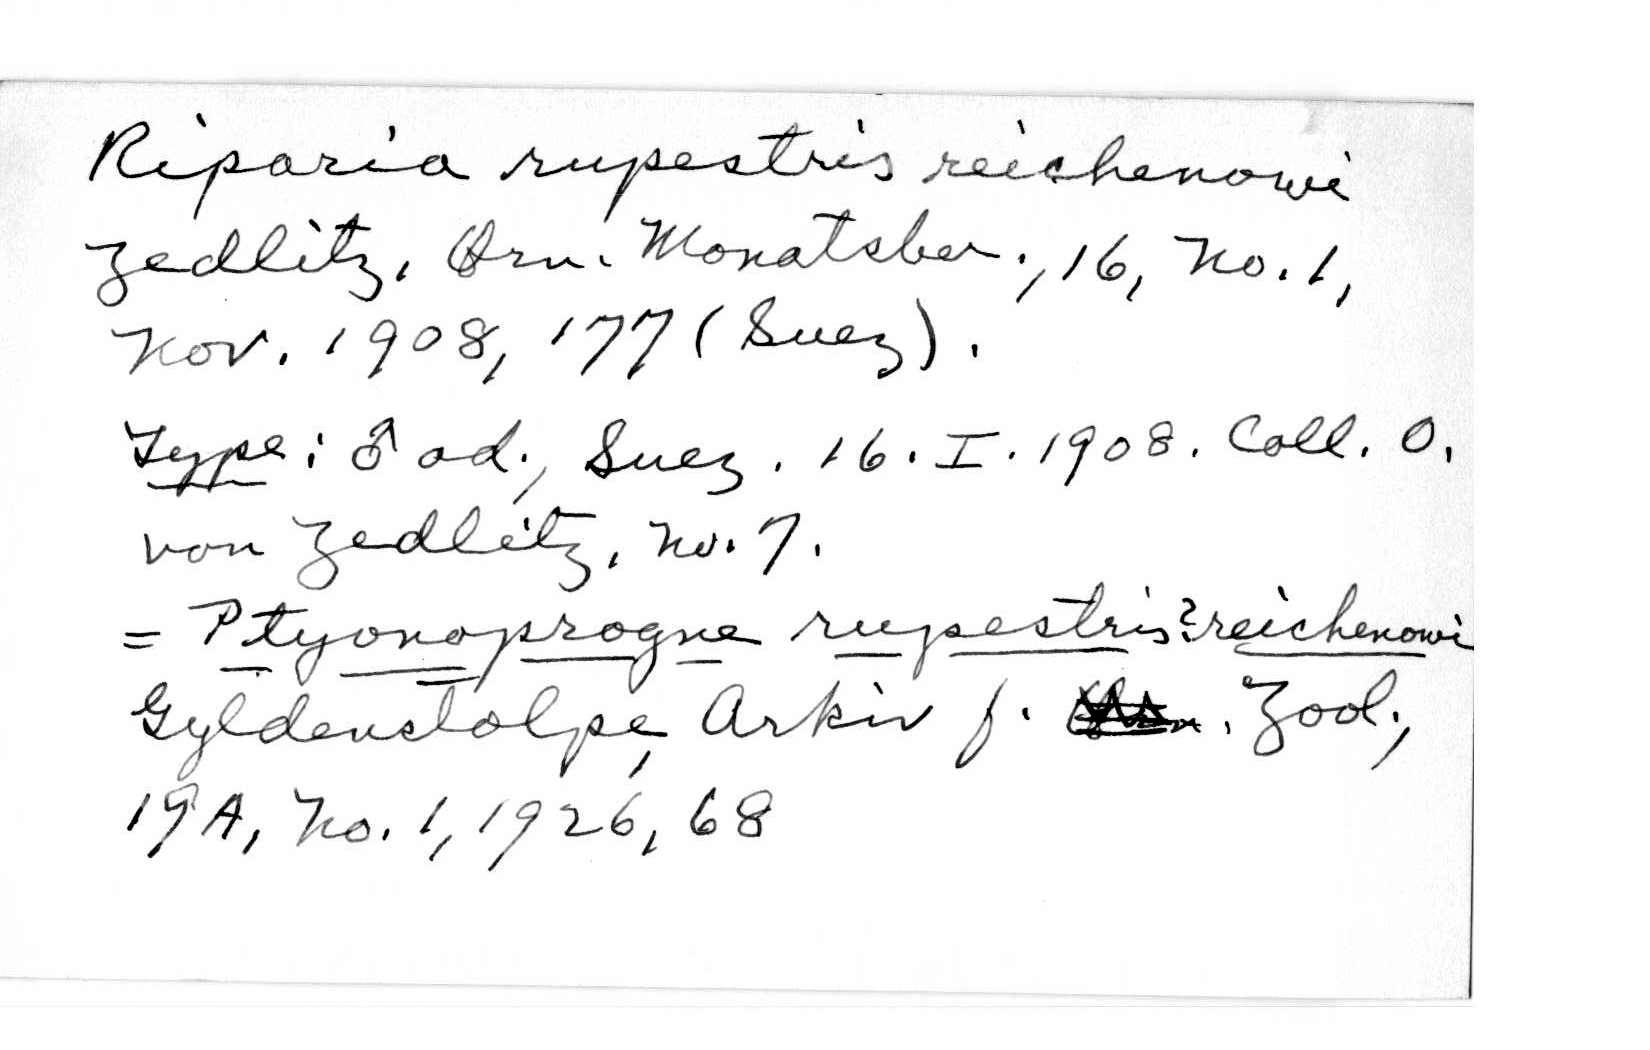 Riparia rupestris reichenowi
Zedlitz, Orn. Monatsber., 16, No. 1,
Nov. 1908, 177 (Suez).
Type: ♂ ad., Suez. 16. I. 1908. Coll. O.
von Zedlitz, No. 7.
= Ptyonoprogne rupestris? reichenowi
Gyldenstolpe, Arkiv f. Zool.,
19A, No. 1, 1926, 68